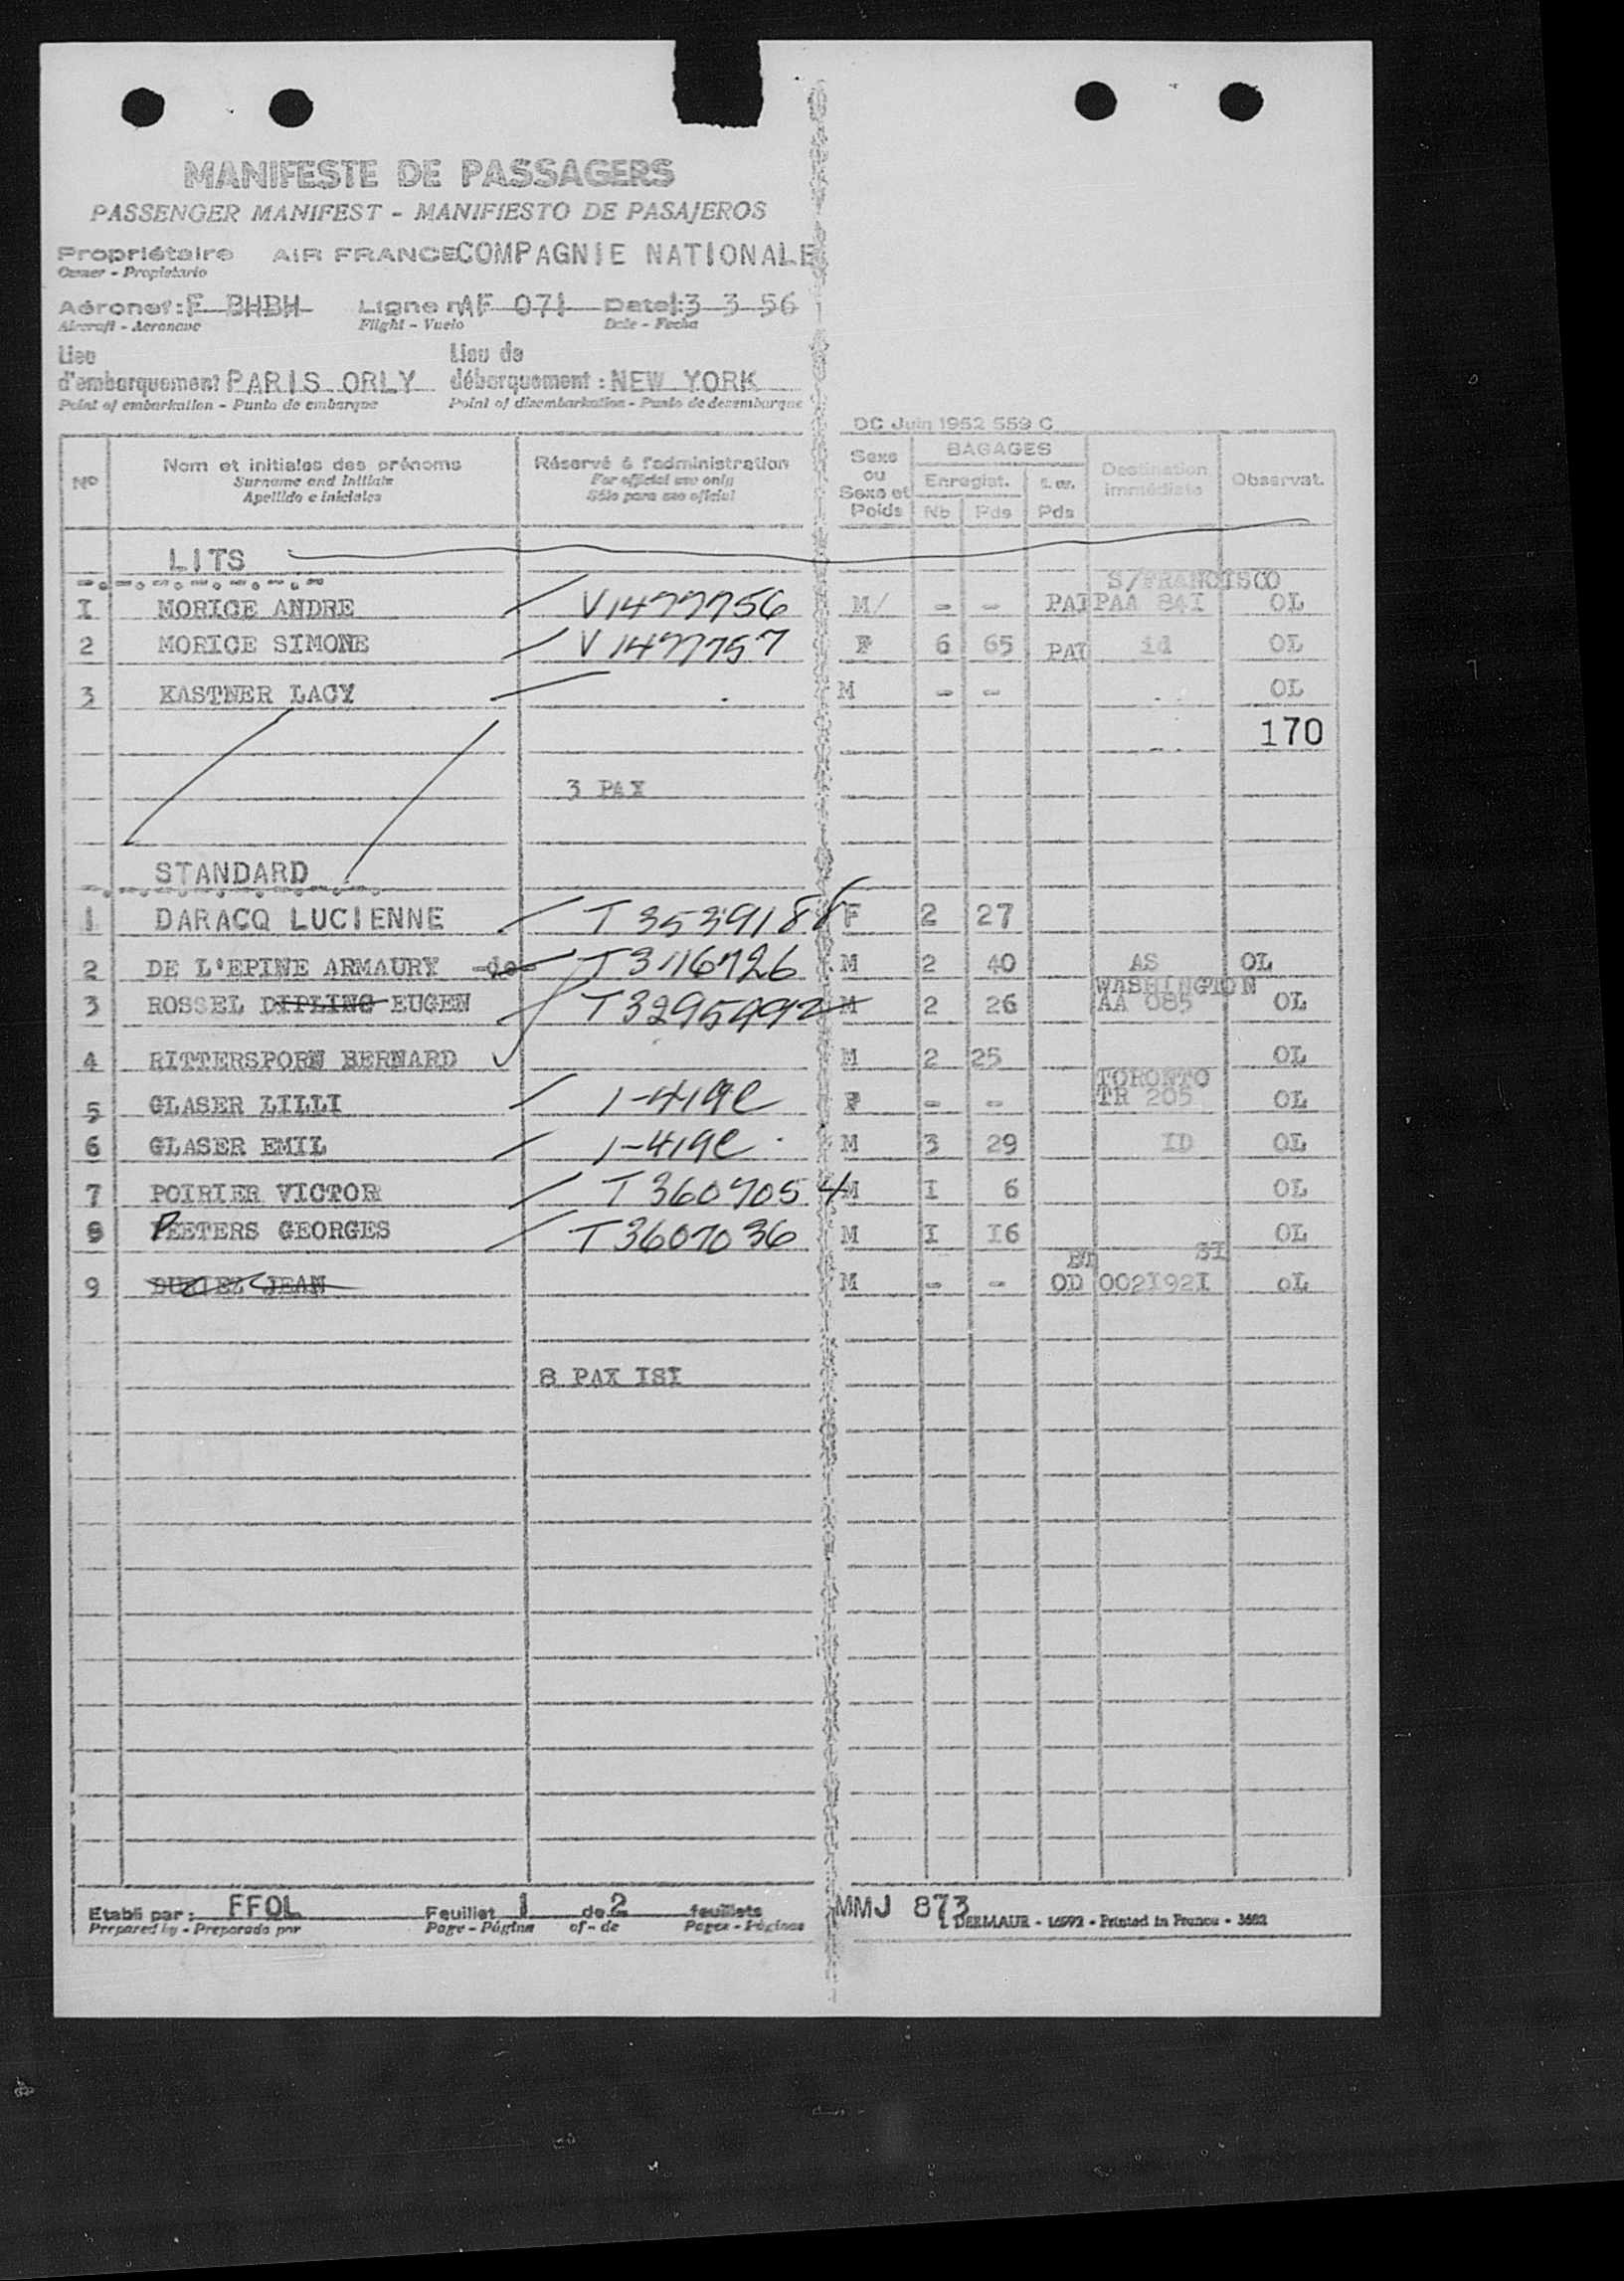 MANIFESTE DE PASSAGERS
PASSENGER MANIFEST - MANIFIESTO DE PASAJEROS
Propriétaire AIR FRANCE COMPAGNIE NATIONALE
Owner - Propietario
Aéronef : F BHBH Ligne n AF 071 Date 13 3 56
Aircraft - Aeronave Flight - Vuelo Date - Fecha
Lieu Lieu de
d'embarquement PARIS ORLY débarquement : NEW YORK
Point of embarkation - Punto de embarque Point of disembarkation - Punto de desembarque
DC Juin 1952 559 C
Nº Nom et initiales des prénoms Réservé à l'administration Sexe ou Sexe et Poids BAGAGES Destination immédiate Observat.
Surname and Initials For official use only Enregist. Nb Pds Pds
Apellido e iniciales Sólo para uso oficial
LITS
S/FRANCISCO
I MORICE ANDRE V1477756 M/ - - PAI PAA 84I OL
2 MORICE SIMONE V1477757 F 6 65 PAI id OL
3 KASTNER LACY M - - OL
170
3 PAX
STANDARD
1 DARACQ LUCIENNE T3539188 F 2 27
2 DE L'EPINE ARMAURY -de- T3116726 M 2 40 AS OL
WASHINGTON
3 ROSSEL DIPLING EUGEN T3295492 M 2 26 AA 085 OL
4 RITTERSPORN BERNARD M 2 25 OL
TORONTO
5 GLASER LILLI 1-419C F - - TR 205 OL
6 GLASER EMIL 1-419C M 3 29 ID OL
7 POIRIER VICTOR T3607054 M I 6 OL
8 PEETERS GEORGES T3607036 M I I6 OL
9 DURIEZ JEAN M - - OD 002I92I oL
8 PAX ISI
Etabli par : FFOL Feuillet 1 de 2 feuillets MMJ 873
Prepared by - Preparado por Page - Página of - de Pages - Páginas DERMAUR - 16992 - Printed in France - 3682